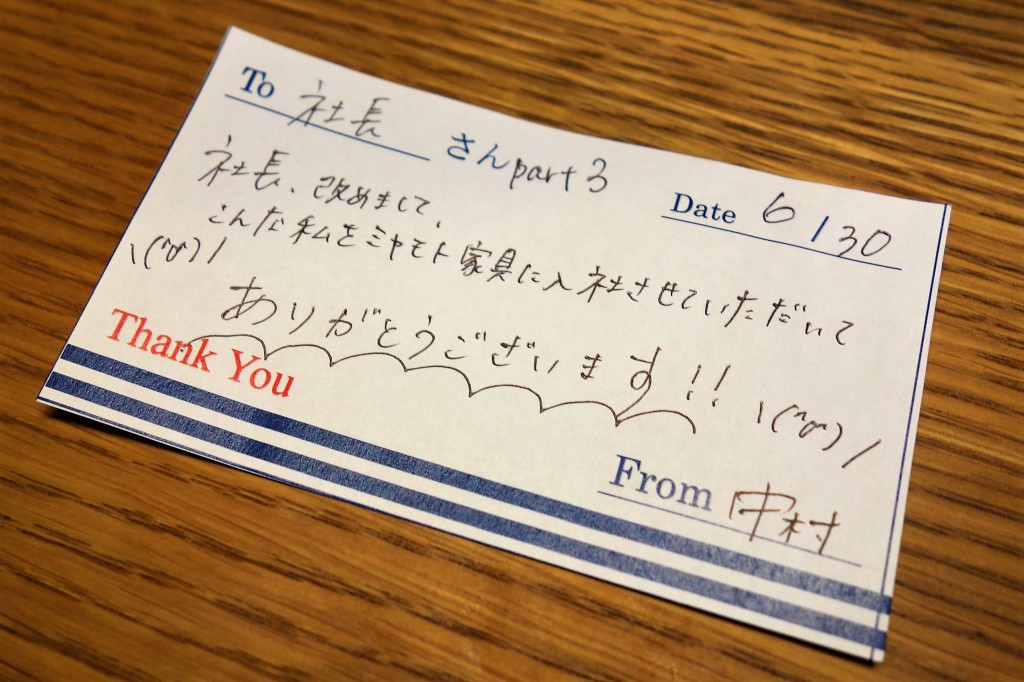 To 社長 さん part 3
Date 6/30
社長、改めまして、
こんな私をミヤモト家具に入社させていただいて
\(^o^)/
ありがとうございます!!
\(^o^)/
Thank You
From 中村